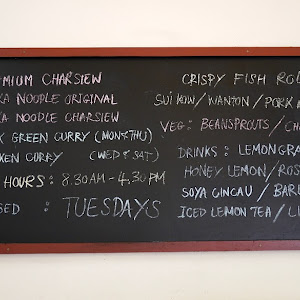 EMIUM CHARSIEW
KA NOODLE ORIGINAL
KA NOODLE CHARSIEW
K GREEN CURRY (MON & THU)
KEN CURRY (WED & SAT)
HOURS : 8.30AM - 4.30PM
SED : TUESDAYS
CRISPY FISH RO
SUI KOW / WANTON / PORK
VEG : BEANSPROUTS / CH
DRINKS : LEMONGRA
HONEY LEMON / ROS
SOYA CINCAU / BAR
ICED LEMON TEA / L